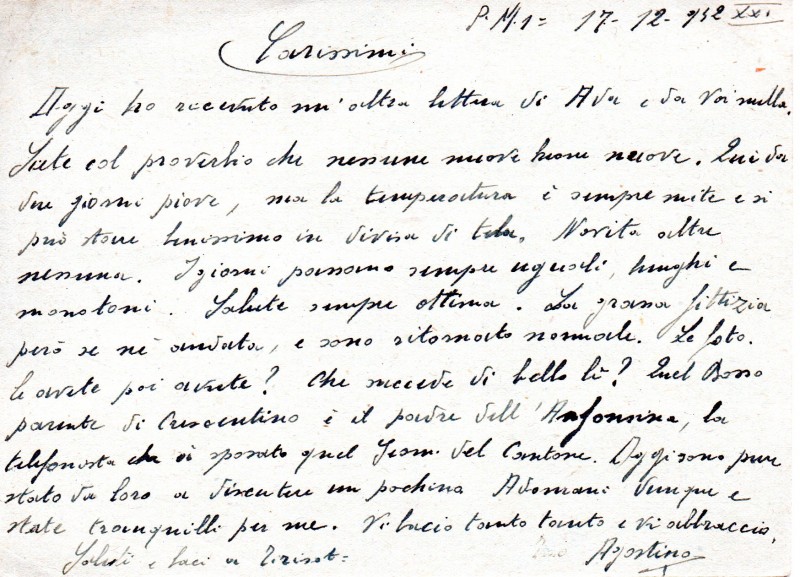 P.M. 1= 17-12-942 XXI
Carissimi
Oggi ho ricevuto un'altra lettera di Ada e da Voi nulla.
Siete col proverbio che nessune nuove buone nuove. Qui da
due giorni piove, ma la temperatura è sempre mite e si
può stare benissimo in divisa di tela. Novità altre
nessuna. I giorni passano sempre uguali, lunghi e
monotoni. Salute sempre ottima. La grassa fittizia
però se nè andata, e sono ritornato normale. Le foto.
le avete poi avute? Che succede di bello lì? Quel Bosso
parente di Crescentino è il padre dell'Anfonsina, la
telefonista che si sposato quel Giom. del Cantone. Oggi sono pure
stato da loro a discutere un pochino A domani dunque e
state tranquilli per me. Vi bacio tanto tanto e vi abbraccio,
Saluti e baci a Agostino